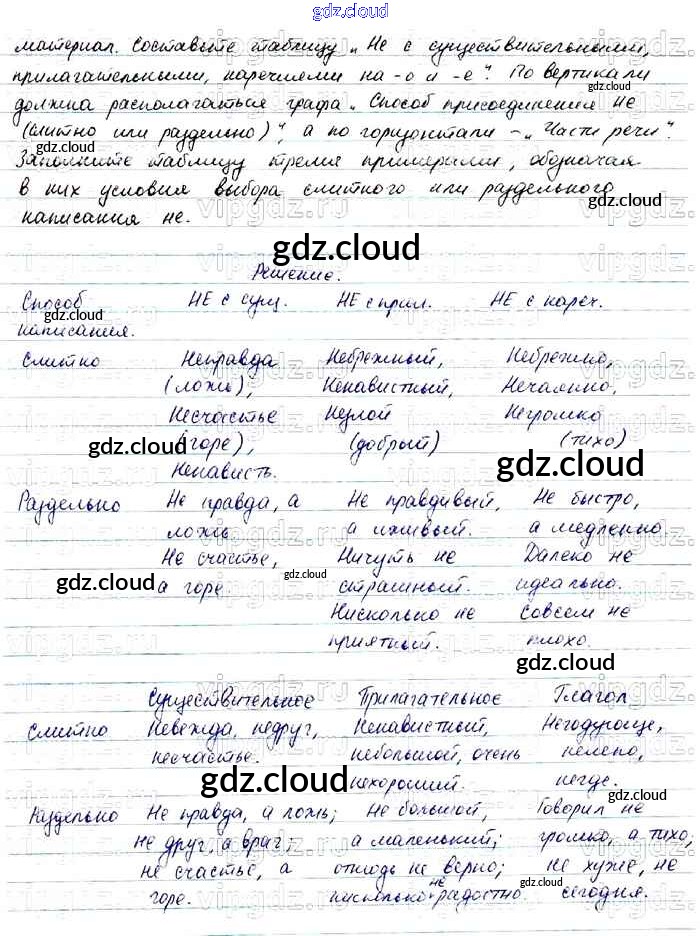 gdz.cloud
материал. Составьте таблицу „Не с существительными,
прилагательными, наречиями на -о и -е". По вертикали
должна располагаться графа „Способ присоединения не
(слитно или раздельно)", а по горизонтали – „Части речи".
Заполните таблицу тремя примерами, обозначая
в них условия выбора слитного или раздельного
написания не.
gdz.cloud
Решение.
Способ написания. НЕ с сущ. НЕ с прил. НЕ с нареч.
Слитно Неправда Небрежный, Небрежно,
(ложь), Ненавистный, Нечаянно,
Несчастье Незлой Негромко
(горе), (добрый) (тихо)
Ненависть.
Раздельно Не правда, а Не правдивый, Не быстро,
ложь. а лживый. а медленно
Не счастье, Ничуть не Далеко не
а горе страшный. идеально.
Нисколько не Совсем не
приятный. плохо.
Существительное Прилагательное Глагол
Слитно Невежда, недруг, Ненавистный, Негодующе,
несчастье. небольшой, очень нелепо,
нехороший. негде.
Раздельно Не правда, а ложь; Не большой, Говорил не
не друг, а враг; а маленький; громко, а тихо;
не счастье, а отнюдь не верно; не хуже, не
горе. нисколько не радостно сегодня.